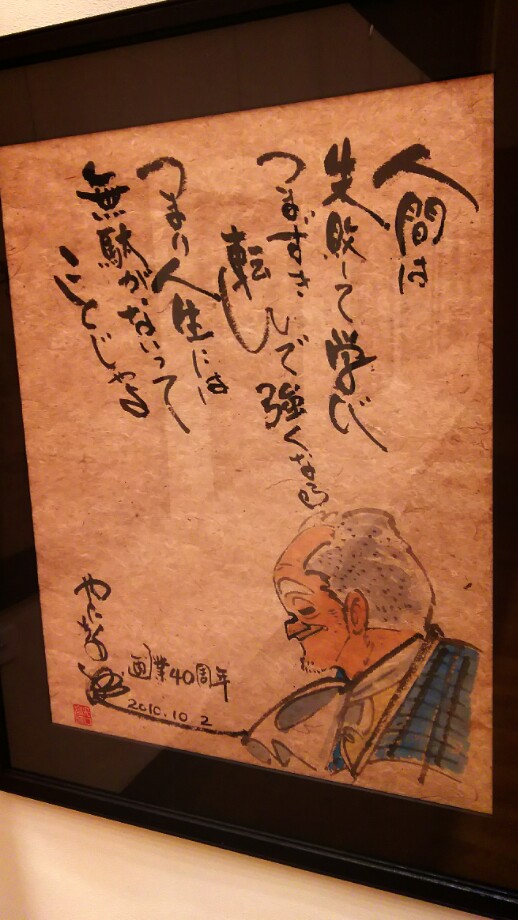 人間は
失敗して学び
つまずき
転んで強くなる
つまり人生には
無駄がないって
ことじゃ
画業40周年
2010.10 2